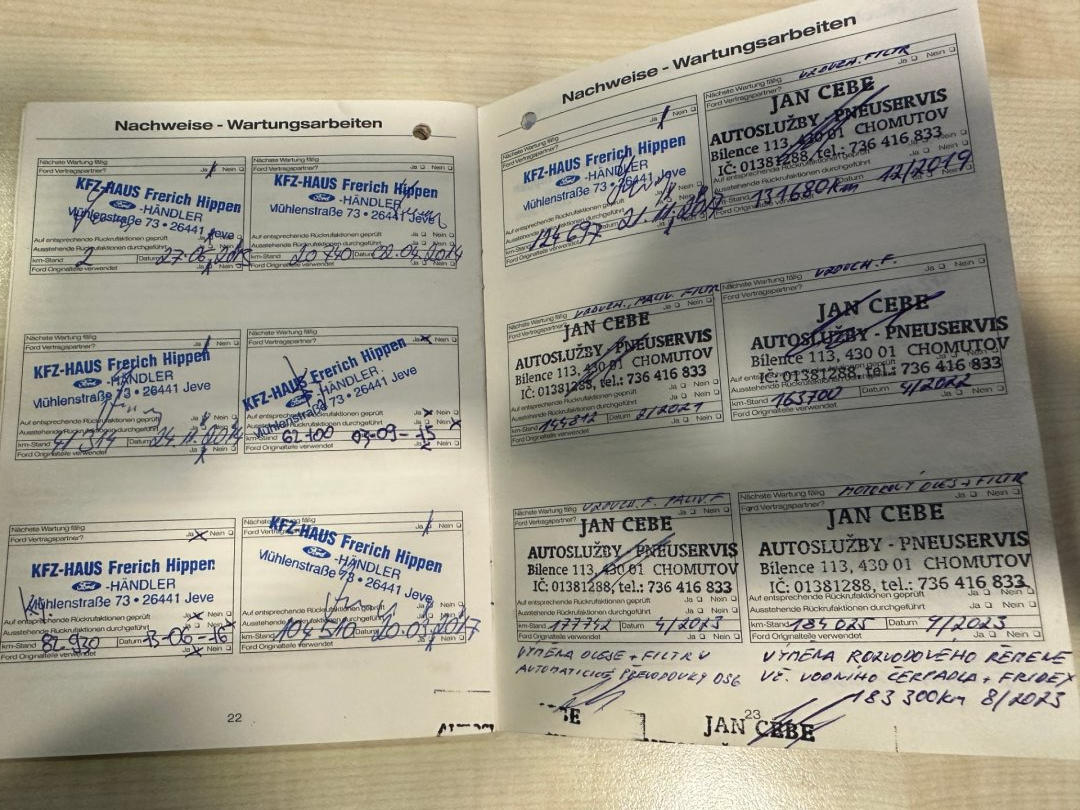 Nachweise - Wartungsarbeiten
Nächste Wartung fällig
Ford Vertragspartner? Ja Nein
KFZ-HAUS Frerich Hippen
Ford -HÄNDLER
Mühlenstraße 73 • 26441 Jeve
Auf entsprechende Rückrufaktionen geprüft
Ausstehende Rückrufaktionen durchgeführt Ja Nein
km-Stand 2 Datum 27-06-2013
Ford Originalteile verwendet Ja Nein
Nächste Wartung fällig
Ford Vertragspartner? Ja Nein
KFZ-HAUS Frerich Hippen
Ford -HÄNDLER
Mühlenstraße 73 • 26441 Jeve
Auf entsprechende Rückrufaktionen geprüft
Ausstehende Rückrufaktionen durchgeführt Ja Nein
km-Stand 20740 Datum 02.04.2014
Ford Originalteile verwendet Ja Nein
Nächste Wartung fällig
Ford Vertragspartner? Ja Nein
KFZ-HAUS Frerich Hippen
Ford -HÄNDLER
Mühlenstraße 73 • 26441 Jeve
Auf entsprechende Rückrufaktionen geprüft
Ausstehende Rückrufaktionen durchgeführt Ja Nein
km-Stand Datum 24.11.2014
Ford Originalteile verwendet Ja Nein
Nächste Wartung fällig
Ja Nein
KFZ-HAUS Frerich Hippen
Ford -HÄNDLER
Mühlenstraße 73 • 26441 Jeve
Auf entsprechende Rückrufaktionen geprüft
Ja Nein
km-Stand 62.100 03-09-15
Ford Originalteile verwendet Ja Nein
Nächste Wartung fällig
Ford Vertragspartner? Ja Nein
KFZ-HAUS Frerich Hippen
Ford -HÄNDLER
Mühlenstraße 73 • 26441 Jeve
Auf entsprechende Rückrufaktionen geprüft Ja Nein
Ausstehende Rückrufaktionen durchgeführt Ja Nein
km-Stand 82.930 Datum 13-06-16
Ford Originalteile verwendet Ja Nein
Nächste Wartung fällig
Ford Vertragspartner? Ja Nein
KFZ-HAUS Frerich Hippen
Ford -HÄNDLER
Mühlenstraße 73 • 26441 Jeve
Auf entsprechende Rückrufaktionen geprüft
Ausstehende Rückrufaktionen durchgeführt Ja Nein
km-Stand 104510 20.01.2017
Ford Originalteile verwendet Ja Nein
22
Nachweise - Wartungsarbeiten
Nächste Wartung fällig
Ford Vertragspartner? Ja Nein
KFZ-HAUS Frerich Hippen
Ford -HÄNDLER
Mühlenstraße 73 • 26441 Jeve
Auf entsprechende Rückrufaktionen geprüft
Ausstehende Rückrufaktionen durchgeführt
km-Stand 124697 21.11.2017
Ford Originalteile verwendet
Nächste Wartung fällig VZDUCH. FILTR
Ford Vertragspartner? Ja Nein
JAN CEBE
AUTOSLUŽBY - PNEUSERVIS
Bílence 113, 430 01 CHOMUTOV
IČ: 01381288, tel.: 736 416 833
Auf entsprechende Rückrufaktionen geprüft
Ausstehende Rückrufaktionen durchgeführt
km-Stand 131680km Datum 12/2019
Ford Originalteile verwendet
Nächste Wartung fällig VZDUCH., PALIV. FILTR
Ford Vertragspartner? Ja Nein
JAN CEBE
AUTOSLUŽBY - PNEUSERVIS
Bílence 113, 430 01 CHOMUTOV
IČ: 01381288, tel.: 736 416 833
Auf entsprechende Rückrufaktionen geprüft
Ausstehende Rückrufaktionen durchgeführt Ja Nein
km-Stand 144812 Datum 2/2021
Ford Originalteile verwendet Ja Nein
Nächste Wartung fällig VZDUCH. F.
Ford Vertragspartner? Ja Nein
JAN CEBE
AUTOSLUŽBY - PNEUSERVIS
Bílence 113, 430 01 CHOMUTOV
IČ: 01381288, tel.: 736 416 833
Ausstehende Rückrufaktionen durchgeführt Ja Nein
km-Stand 163700 Datum 4/2022
Ford Originalteile verwendet Ja Nein
Nächste Wartung fällig VZDUCH. F. PALIV. F
Ford Vertragspartner? Ja Nein
JAN CEBE
AUTOSLUŽBY - PNEUSERVIS
Bílence 113, 430 01 CHOMUTOV
IČ: 01381288, tel.: 736 416 833
Auf entsprechende Rückrufaktionen geprüft Ja Nein
Ausstehende Rückrufaktionen durchgeführt Ja Nein
km-Stand 177742 Datum 4/2023
Ford Originalteile verwendet Ja Nein
Nächste Wartung fällig MOTOROVÝ OLEJ + FILTR
Ford Vertragspartner? Ja Nein
JAN CEBE
AUTOSLUŽBY - PNEUSERVIS
Bílence 113, 430 01 CHOMUTOV
IČ: 01381288, tel.: 736 416 833
Auf entsprechende Rückrufaktionen geprüft
Ausstehende Rückrufaktionen durchgeführt Ja Nein
km-Stand 184025 Datum 9/2023
Ford Originalteile verwendet Ja Nein
VÝMĚNA OLEJE + FILTRU
AUTOMATICKÉ PŘEVODOVKY DSG
VÝMĚNA ROZVODOVÉHO ŘEMENE
VČ. VODNÍHO ČERPADLA + FRIDEX
183 300km 8/2023
23
JAN CEBE